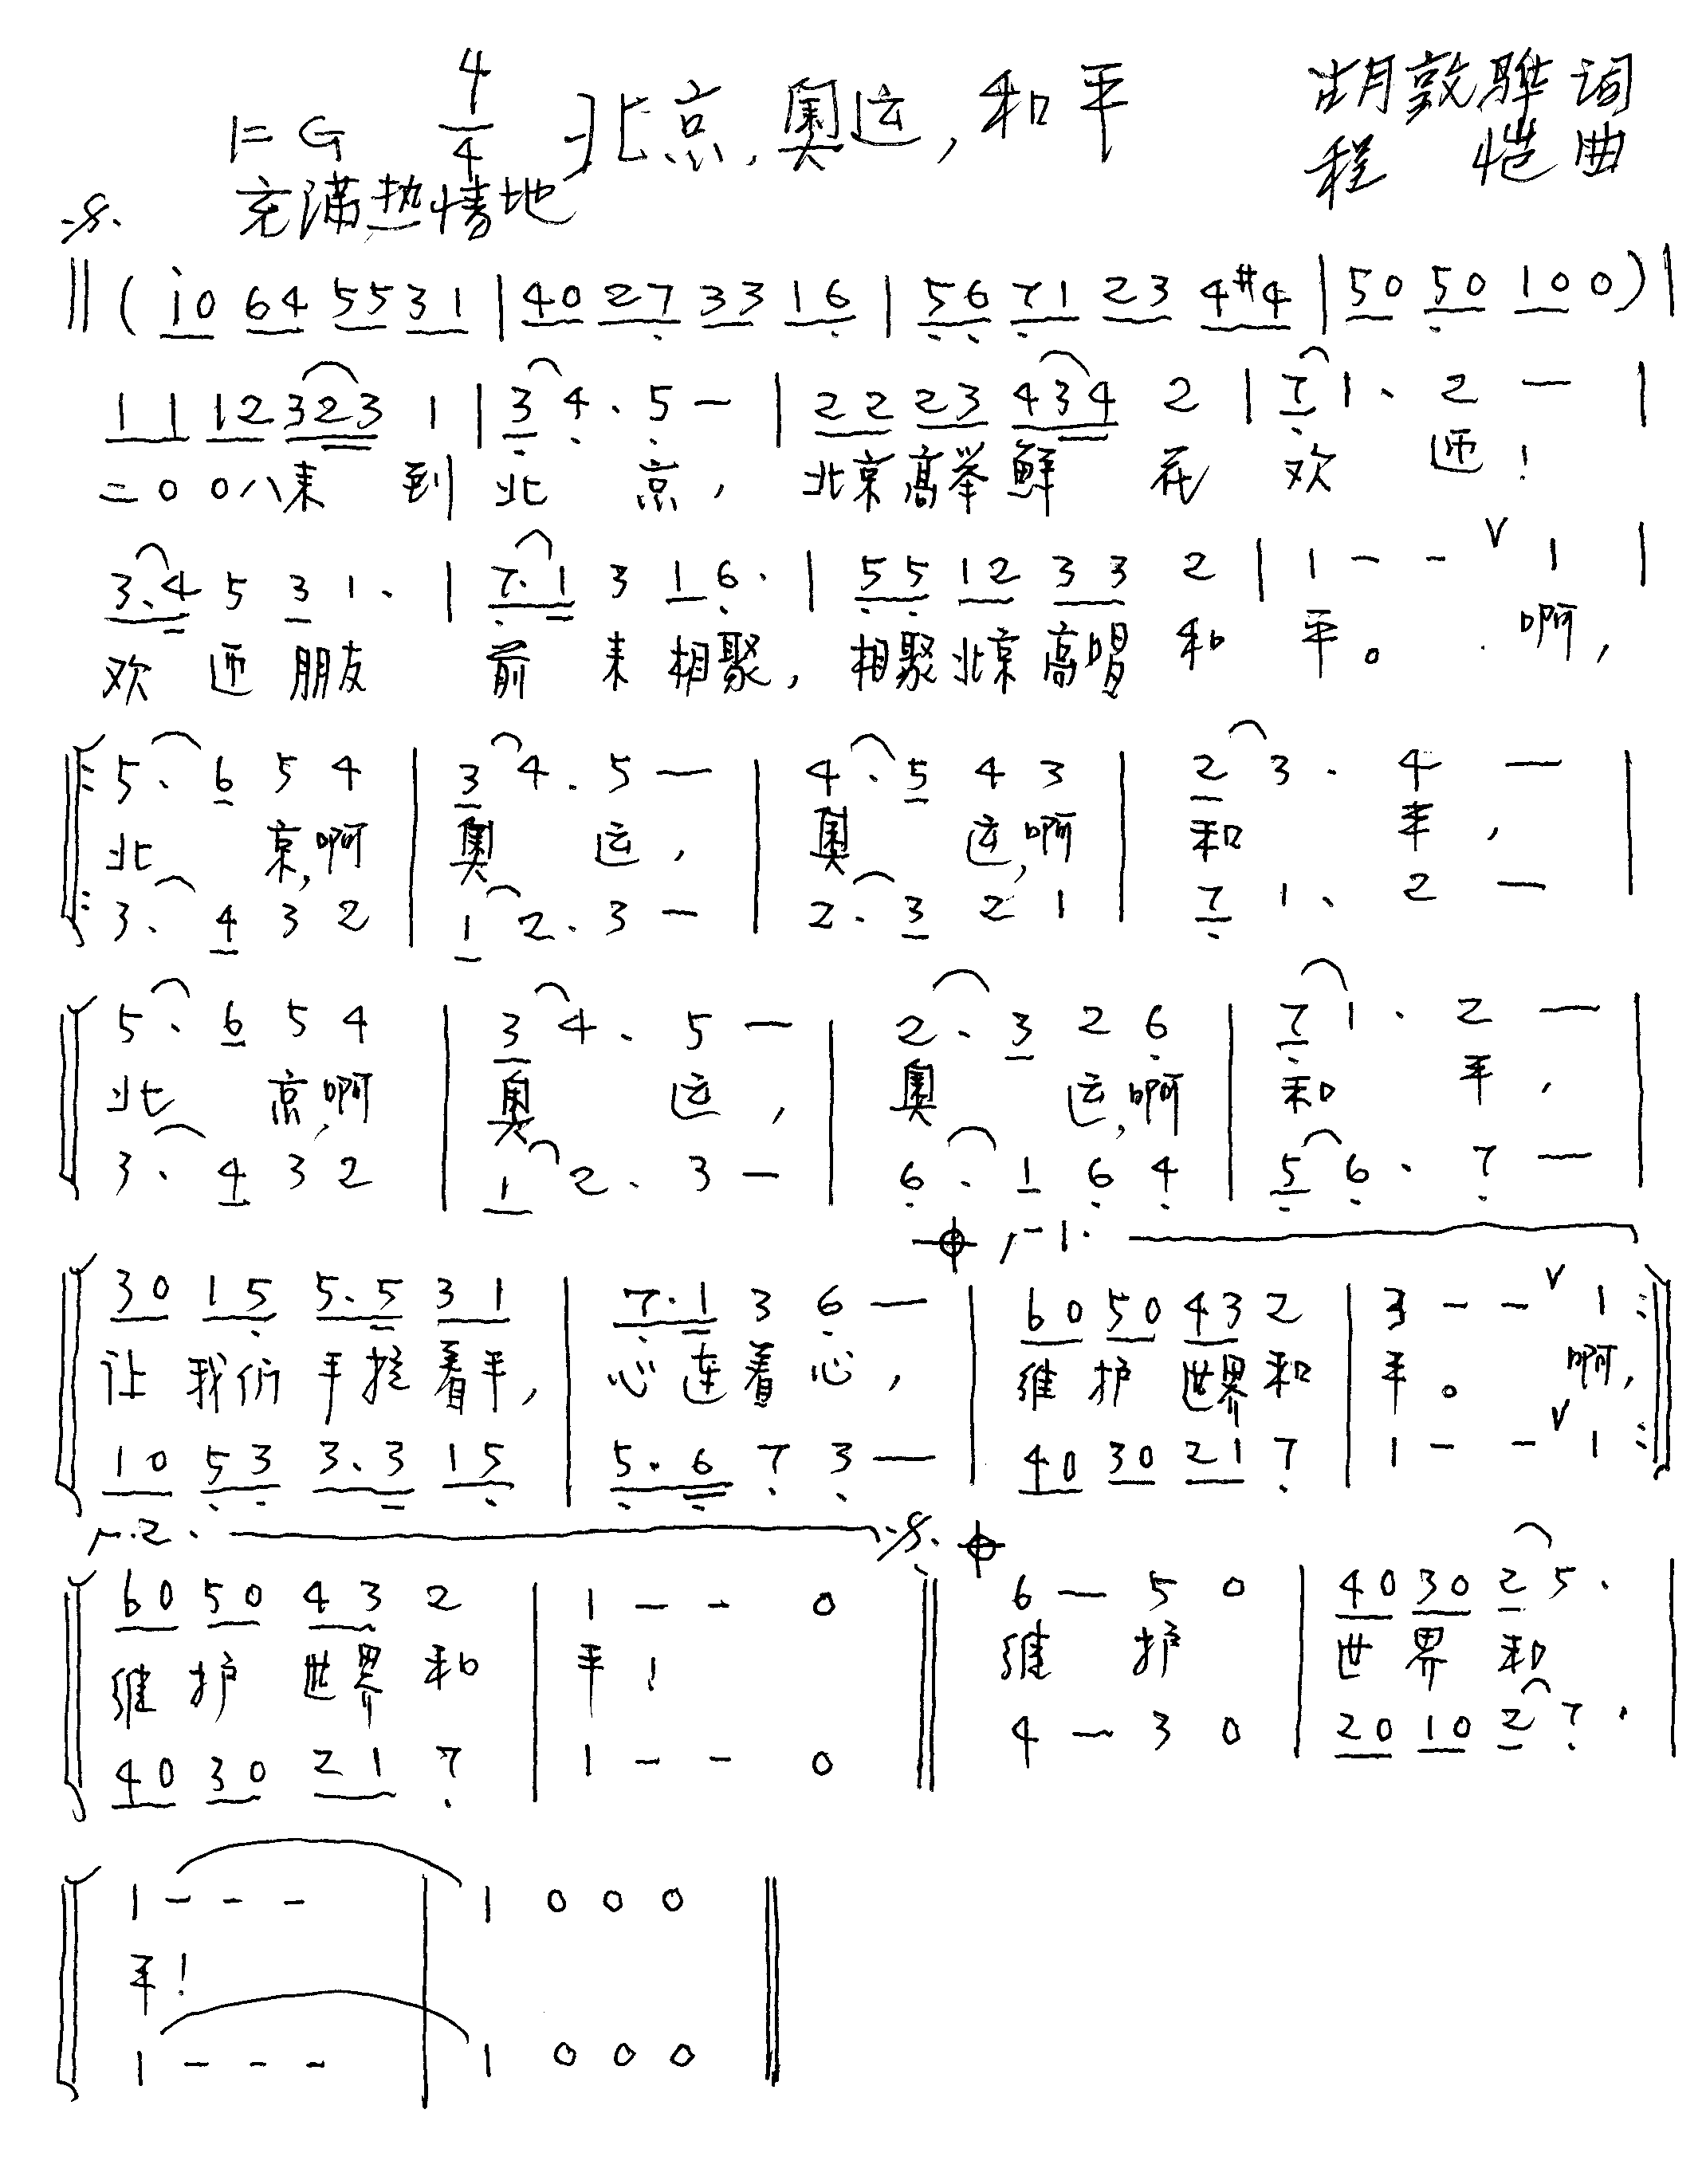 1=G 4/4 北京,奥运,和平 胡敦骅词
程 恺曲
充满热情地
(i0 64 55 31 | 40 27 33 16 | 56 71 23 4#4 | 50 50 10 0) |
1 1 12 323 1 | 3 4. 5 - | 22 23 434 2 | 7 1. 2 - |
二00八来 到 北 京, 北京高举鲜 花 欢 迎!
3.4 5 3 1. | 7.1 3 1 6. | 55 12 33 2 | 1 - - V 1 |
欢 迎 朋友 前 来 相聚, 相聚北京高唱 和 平。 啊,
5. 6 5 4 | 3 4. 5 - | 4. 5 4 3 | 2 3. 4 - |
北 京,啊 奥 运, 奥 运,啊 和 平,
3. 4 3 2 | 1 2. 3 - | 2. 3 2 1 | 7 1. 2 - |
5. 6 5 4 | 3 4. 5 - | 2. 3 2 6 | 7 1. 2 - |
北 京,啊 奥 运, 奥 运,啊 和 平,
3. 4 3 2 | 1 2. 3 - | 6. 1 6 4 | 5 6. 7 - |
1.
30 15 5.5 31 | 7.1 3 6 - | 60 50 43 2 | 3 - - V 1 :
让 我们 手挽着手, 心连着心, 维 护 世界 和 平。 啊,
10 53 3.3 15 | 5.6 7 3 - | 40 30 21 7 | 1 - - V 1 :
2.
60 50 43 2 | 1 - - 0 || 6 - 5 0 | 40 30 2 5. |
维 护 世界 和 平! 维 护 世 界 和
40 30 21 7 | 1 - - 0 || 4 - 3 0 | 20 10 2 7. |
1 - - - | 1 0 0 0 ||
平!
1 - - - | 1 0 0 0 ||